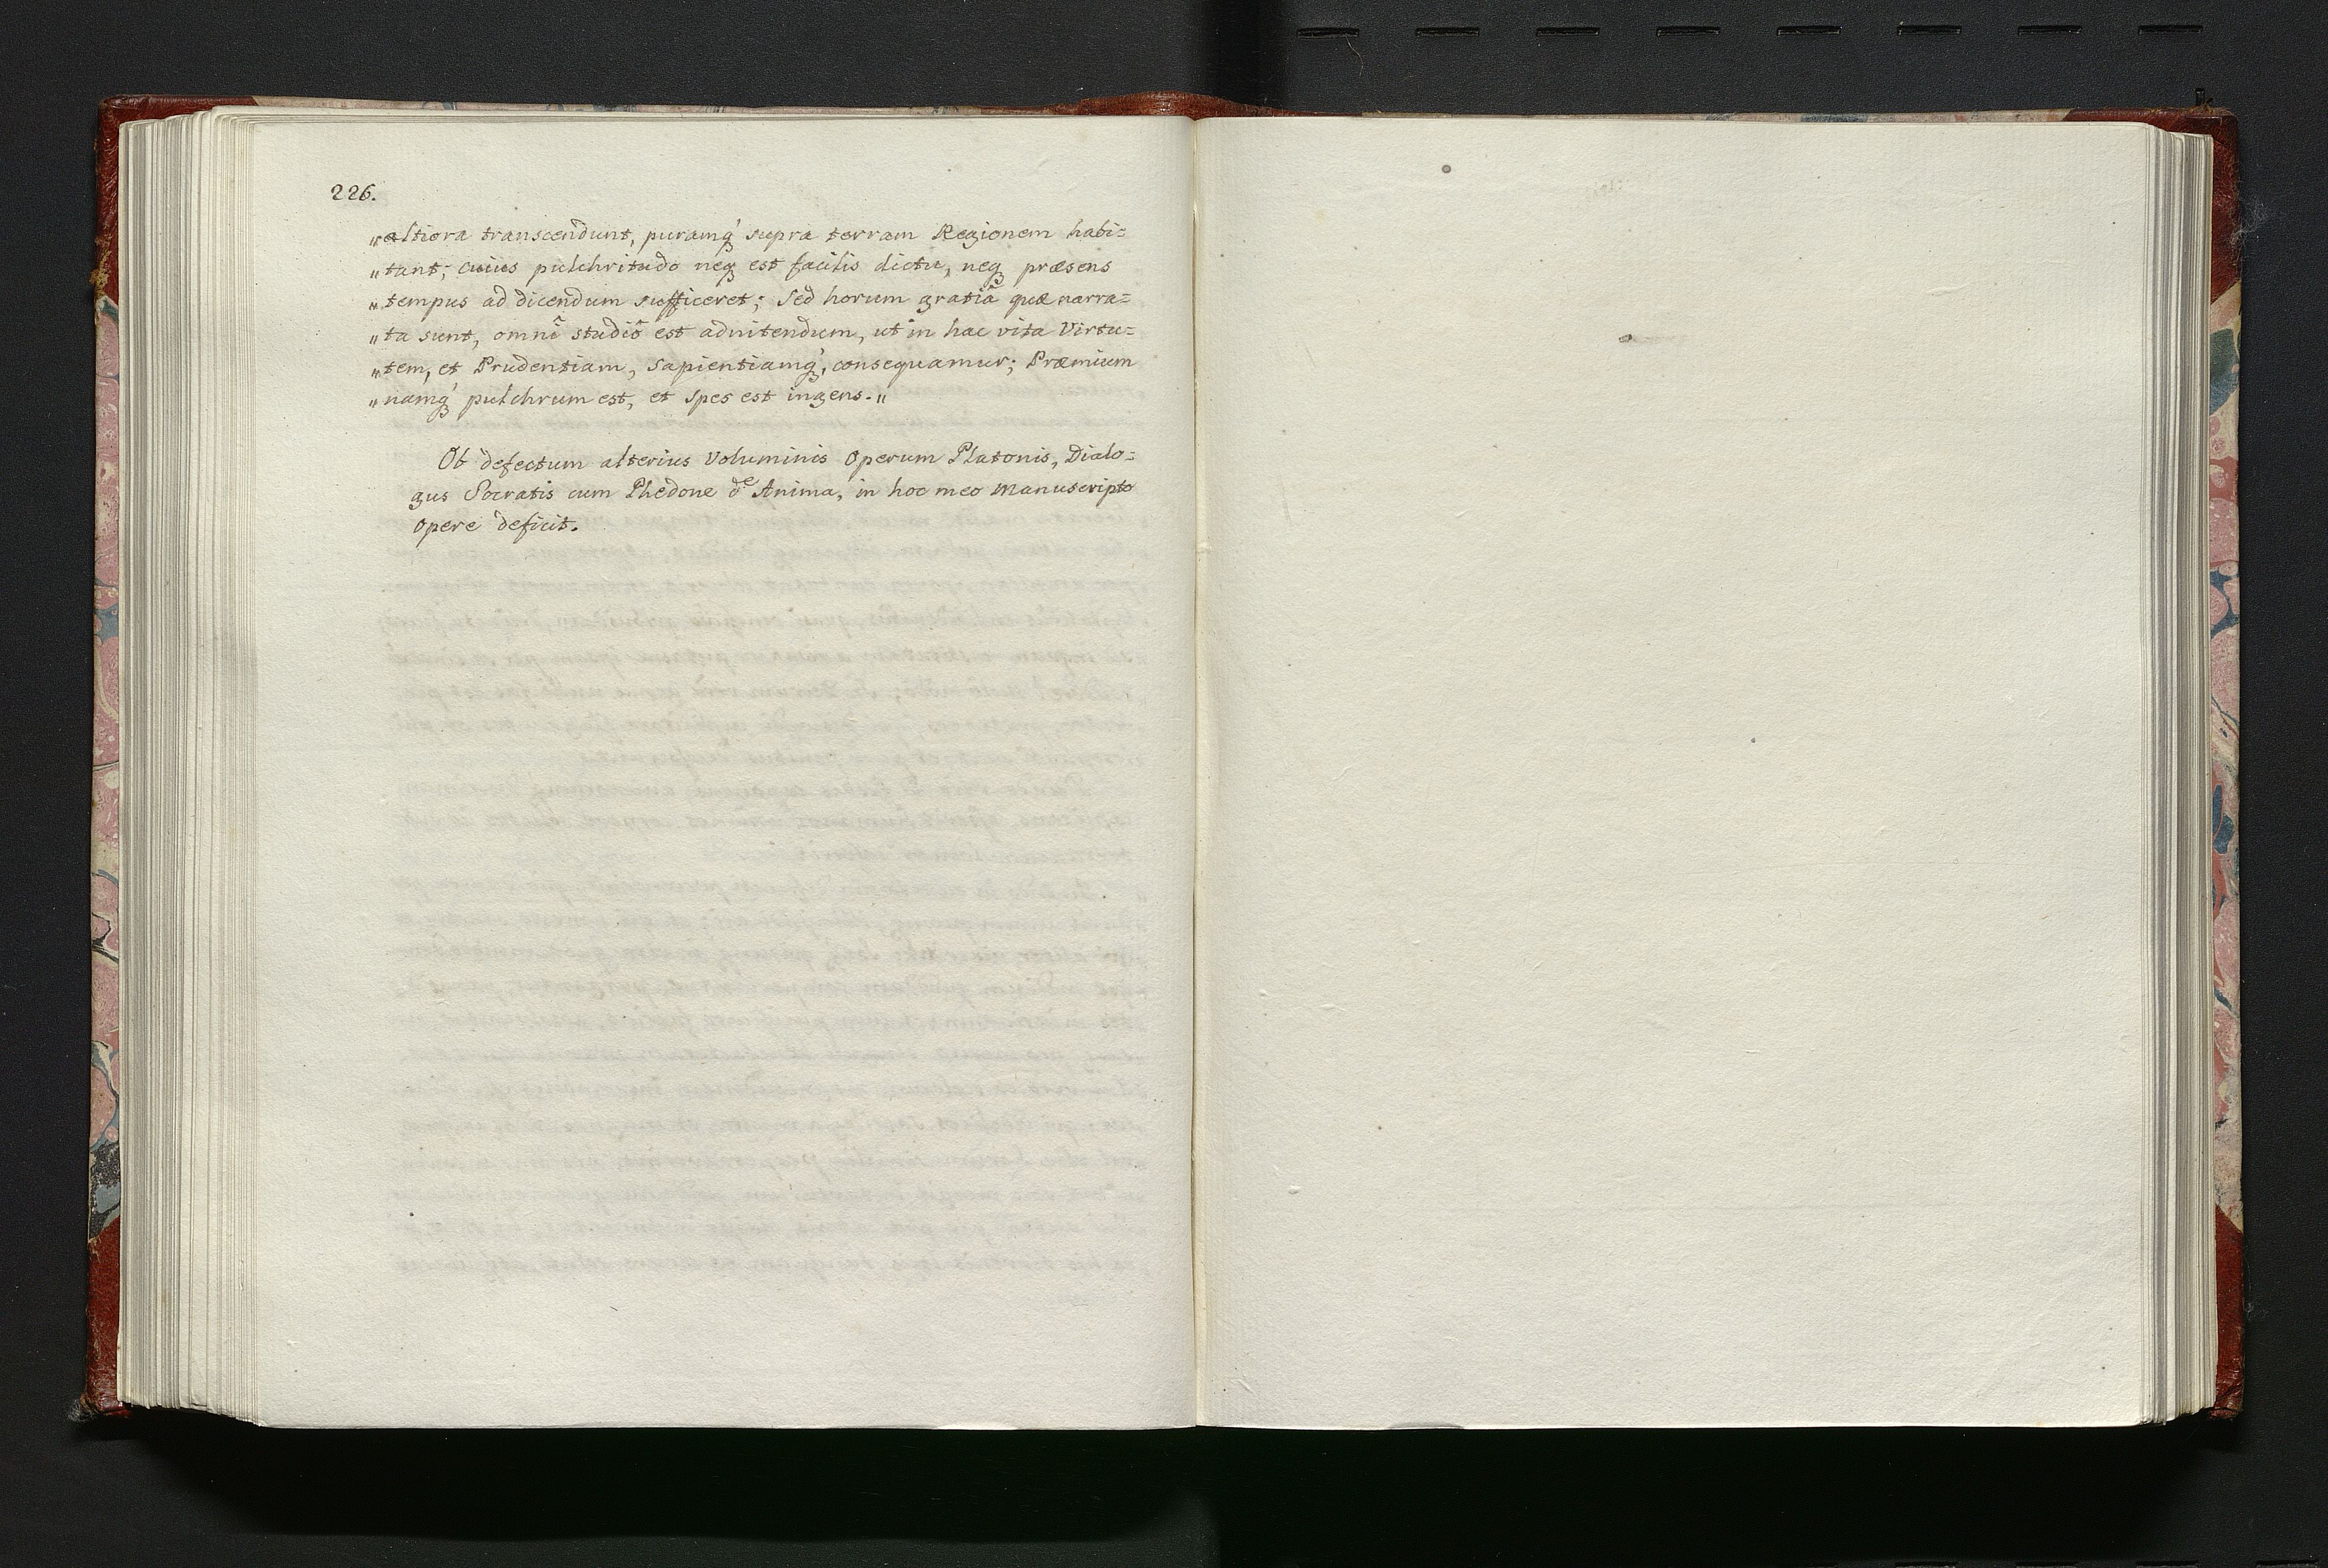 226.
„altiora transcendunt, puramq́ supra terram Regionem habi=
„tant; cuius pulchritudo neq est facilis dictu, neq præsens
„tempus ad dicendum sufficeret; Sed horum gratiâ quæ narra=
„ta sunt, omnî studiô est adnitendum, ut in hac vita Virtu=
„tem, et Prudentiam, Sapientiamq́, consequamur; Præmium
„namq́ pulchrum est, et Spes est ingens.„
Ob defectum alterius Voluminis Operum Platonis, Dialo=
gus Socratis cum Phedone de Anima, in hoc meo Manuscripto
Opere deficit.